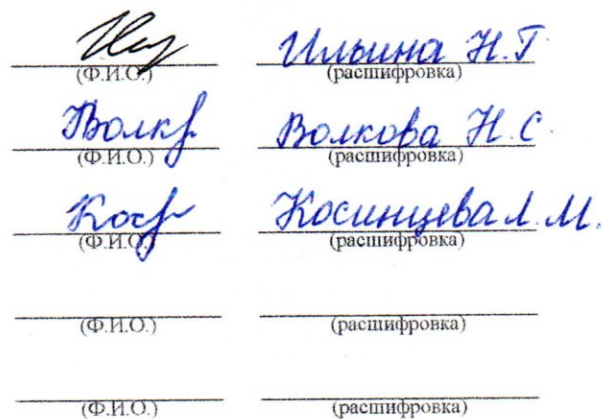 Ильина Н.Г
(Ф.И.О.) (расшифровка)
Волкова Н.С.
(Ф.И.О.) (расшифровка)
Косинцева Л.М.
(Ф.И.О.) (расшифровка)
(Ф.И.О.) (расшифровка)
(Ф.И.О.) (расшифровка)